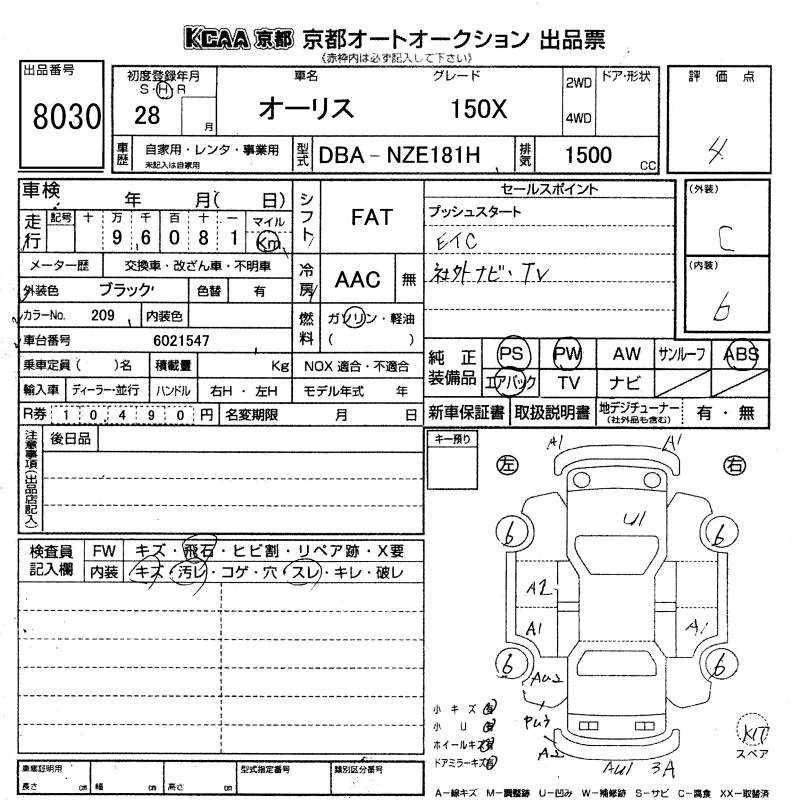 KCAA 京都 京都オートオークション 出品票
《赤枠内は必ず記入して下さい》
出品番号
8030
初度登録年月
S・H・R
28
月
車名
オーリス
グレード
150X
2WD
4WD
ドア・形状
評価点
4
車歴
自家用・レンタ・事業用
未記入は自家用
型式
DBA－NZE181H
排気
1500
CC
車検
年 月( 日)
走行
記号 十 万 千 百 十 一
9 6 0 8 1
マイル
Km
メーター歴
交換車・改ざん車・不明車
外装色
ブラック
色替
有
カラーNo.
209
内装色
車台番号
6021547
乗車定員( )名
積載量
Kg
輸入車
ディーラー・並行
ハンドル
右H・左H
R券
10490円
名変期限
月 日
シフト
FAT
冷房
AAC
無
燃料
ガソリン・軽油
( )
NOX 適合・不適合
モデル年式 年
セールスポイント
プッシュスタート
ETC
社外ナビ・TV
(外装)
C
(内装)
b
純正装備品
PS
PW
AW
サンルーフ
ABS
エアバック
TV
ナビ
新車保証書
取扱説明書
地デジチューナー
(社外品も含む)
有・無
注意事項(出品店記入)
後日品
キー預り
検査員記入欄
FW
キズ・飛石・ヒビ割・リペア跡・X要
内装
キズ・汚レ・コゲ・穴・スレ・キレ・破レ
左
右
A1
A1
U1
6
6
A2
A1
A1
6
6
AU2
PU3
A2
AU1
3A
KIT
スペア
小キズ
小U
ホイールキズ
ドアミラーキズ
車庫証明用
長さ cm
幅 cm
高さ cm
型式指定番号
類別区分番号
A－線キズ M－調整跡 U－凹み W－補修跡 S－サビ C－腐食 XX－取替済